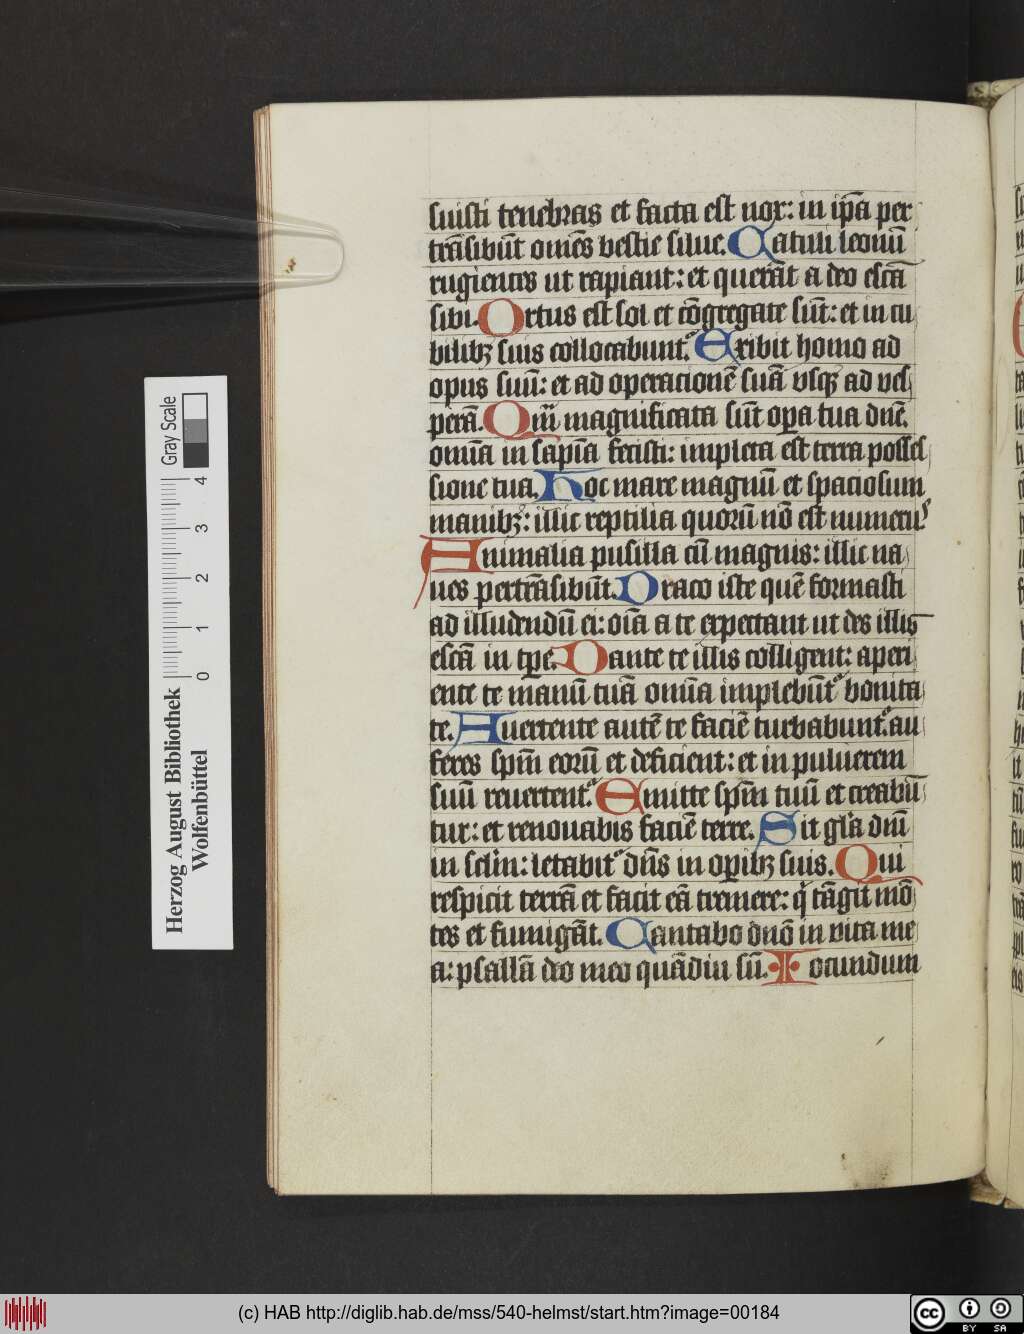 suisti tenebras et facta est nox: in ip̄a per
trāsibūt om̄es bestie silue. Catuli leonū
rugientes ut rapiant: et querāt a deo escā
sibi. Ortus est sol et cōgregate sūt: et in cu
bilibꝫ suis collocabunt᷑. Exibit homo ad
opus suū: et ad operacionē suā vsqꝫ ad ves
perā. Qm̄ magnificata sūt oꝑa tua dn̄e.
omīa in sapīa fecisti: impleta est terra posses
sione tua. Hoc mare magnū et spaciosum
manibꝫ: illic reptilia quorū nō est numerꝰ
Animalia pusilla cū magnis: illic na
ues pertrāsibūt. Draco iste quē formasti
ad illudendū ei: oīa a te expectant ut des illis
escā in tꝑe. Dante te illis colligent: aperi
ente te manū tuā omīa implebūt᷑ bonita
te. Auertente autē te faciē turbabunt᷑. au
feres spm̄ eorū et deficient: et in puluerem
suū reuertent᷑. Emitte spm̄ tuū et creabū
tur: et renouabis faciē terre. Sit gl̄a dnī
in sclm̄: letabit᷑ dn̄s in oꝑibꝫ suis. Qui
respicit terrā et facit eā tremere: qͥ tāgit mō
tes et fumigāt. Cantabo dnō in vita me
a: psallā deo meo quādiu sū. Iocundum
Herzog August Bibliothek
Wolfenbüttel
Gray Scale
0 1 2 3 4
(c) HAB http://diglib.hab.de/mss/540-helmst/start.htm?image=00184
cc BY SA